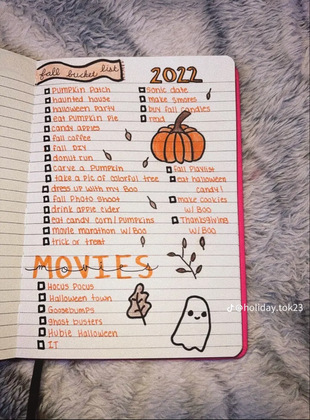 fall bucket list
2022
pumpkin patch
haunted house
halloween party
eat pumpkin pie
candy apples
fall coffee
fall DIY
donut run
carve a pumpkin
take a pic of colorful tree
dress up with my Boo
fall photo shoot
drink apple cider
eat candy corn/pumpkins
movie marathon w/Boo
trick or treat
sonic date
make smores
buy fall candles
read
fall playlist
eat halloween
candy!
make cookies
w/Boo
Thanksgiving
w/Boo
MOVIES
movies
Hocus Pocus
Halloween town
Goosebumps
Ghost busters
Hubie Halloween
IT
@holiday.tok23